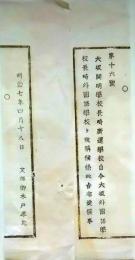 第十六號
大坂開明學校長崎廣運學校自今大坂外國語學
校長崎外國語學校ト改稱候條此旨布達候事
明治七年四月十八日
文部卿木戸孝允